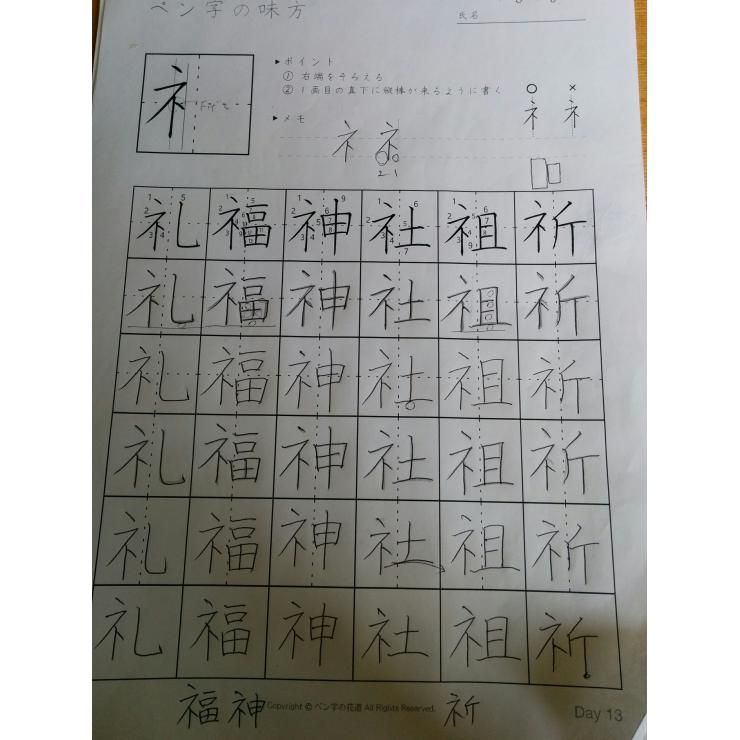 ペン字の味方
氏名
▶ポイント
① 右端をそろえる
② 1画目の真下に縦棒が来るように書く
○ ×
礻
礻 礻
▶メモ
礻 礻
2 1
礼 福 神 社 祖 祈
礼 福 神 社 祖 祈
礼 福 神 社 祖 祈
礼 福 神 社 祖 祈
礼 福 神 社 祖 祈
礼 福 神 社 祖 祈
福 神 祈
Copyright © ペン字の花道 All Rights Reserved.
Day 13